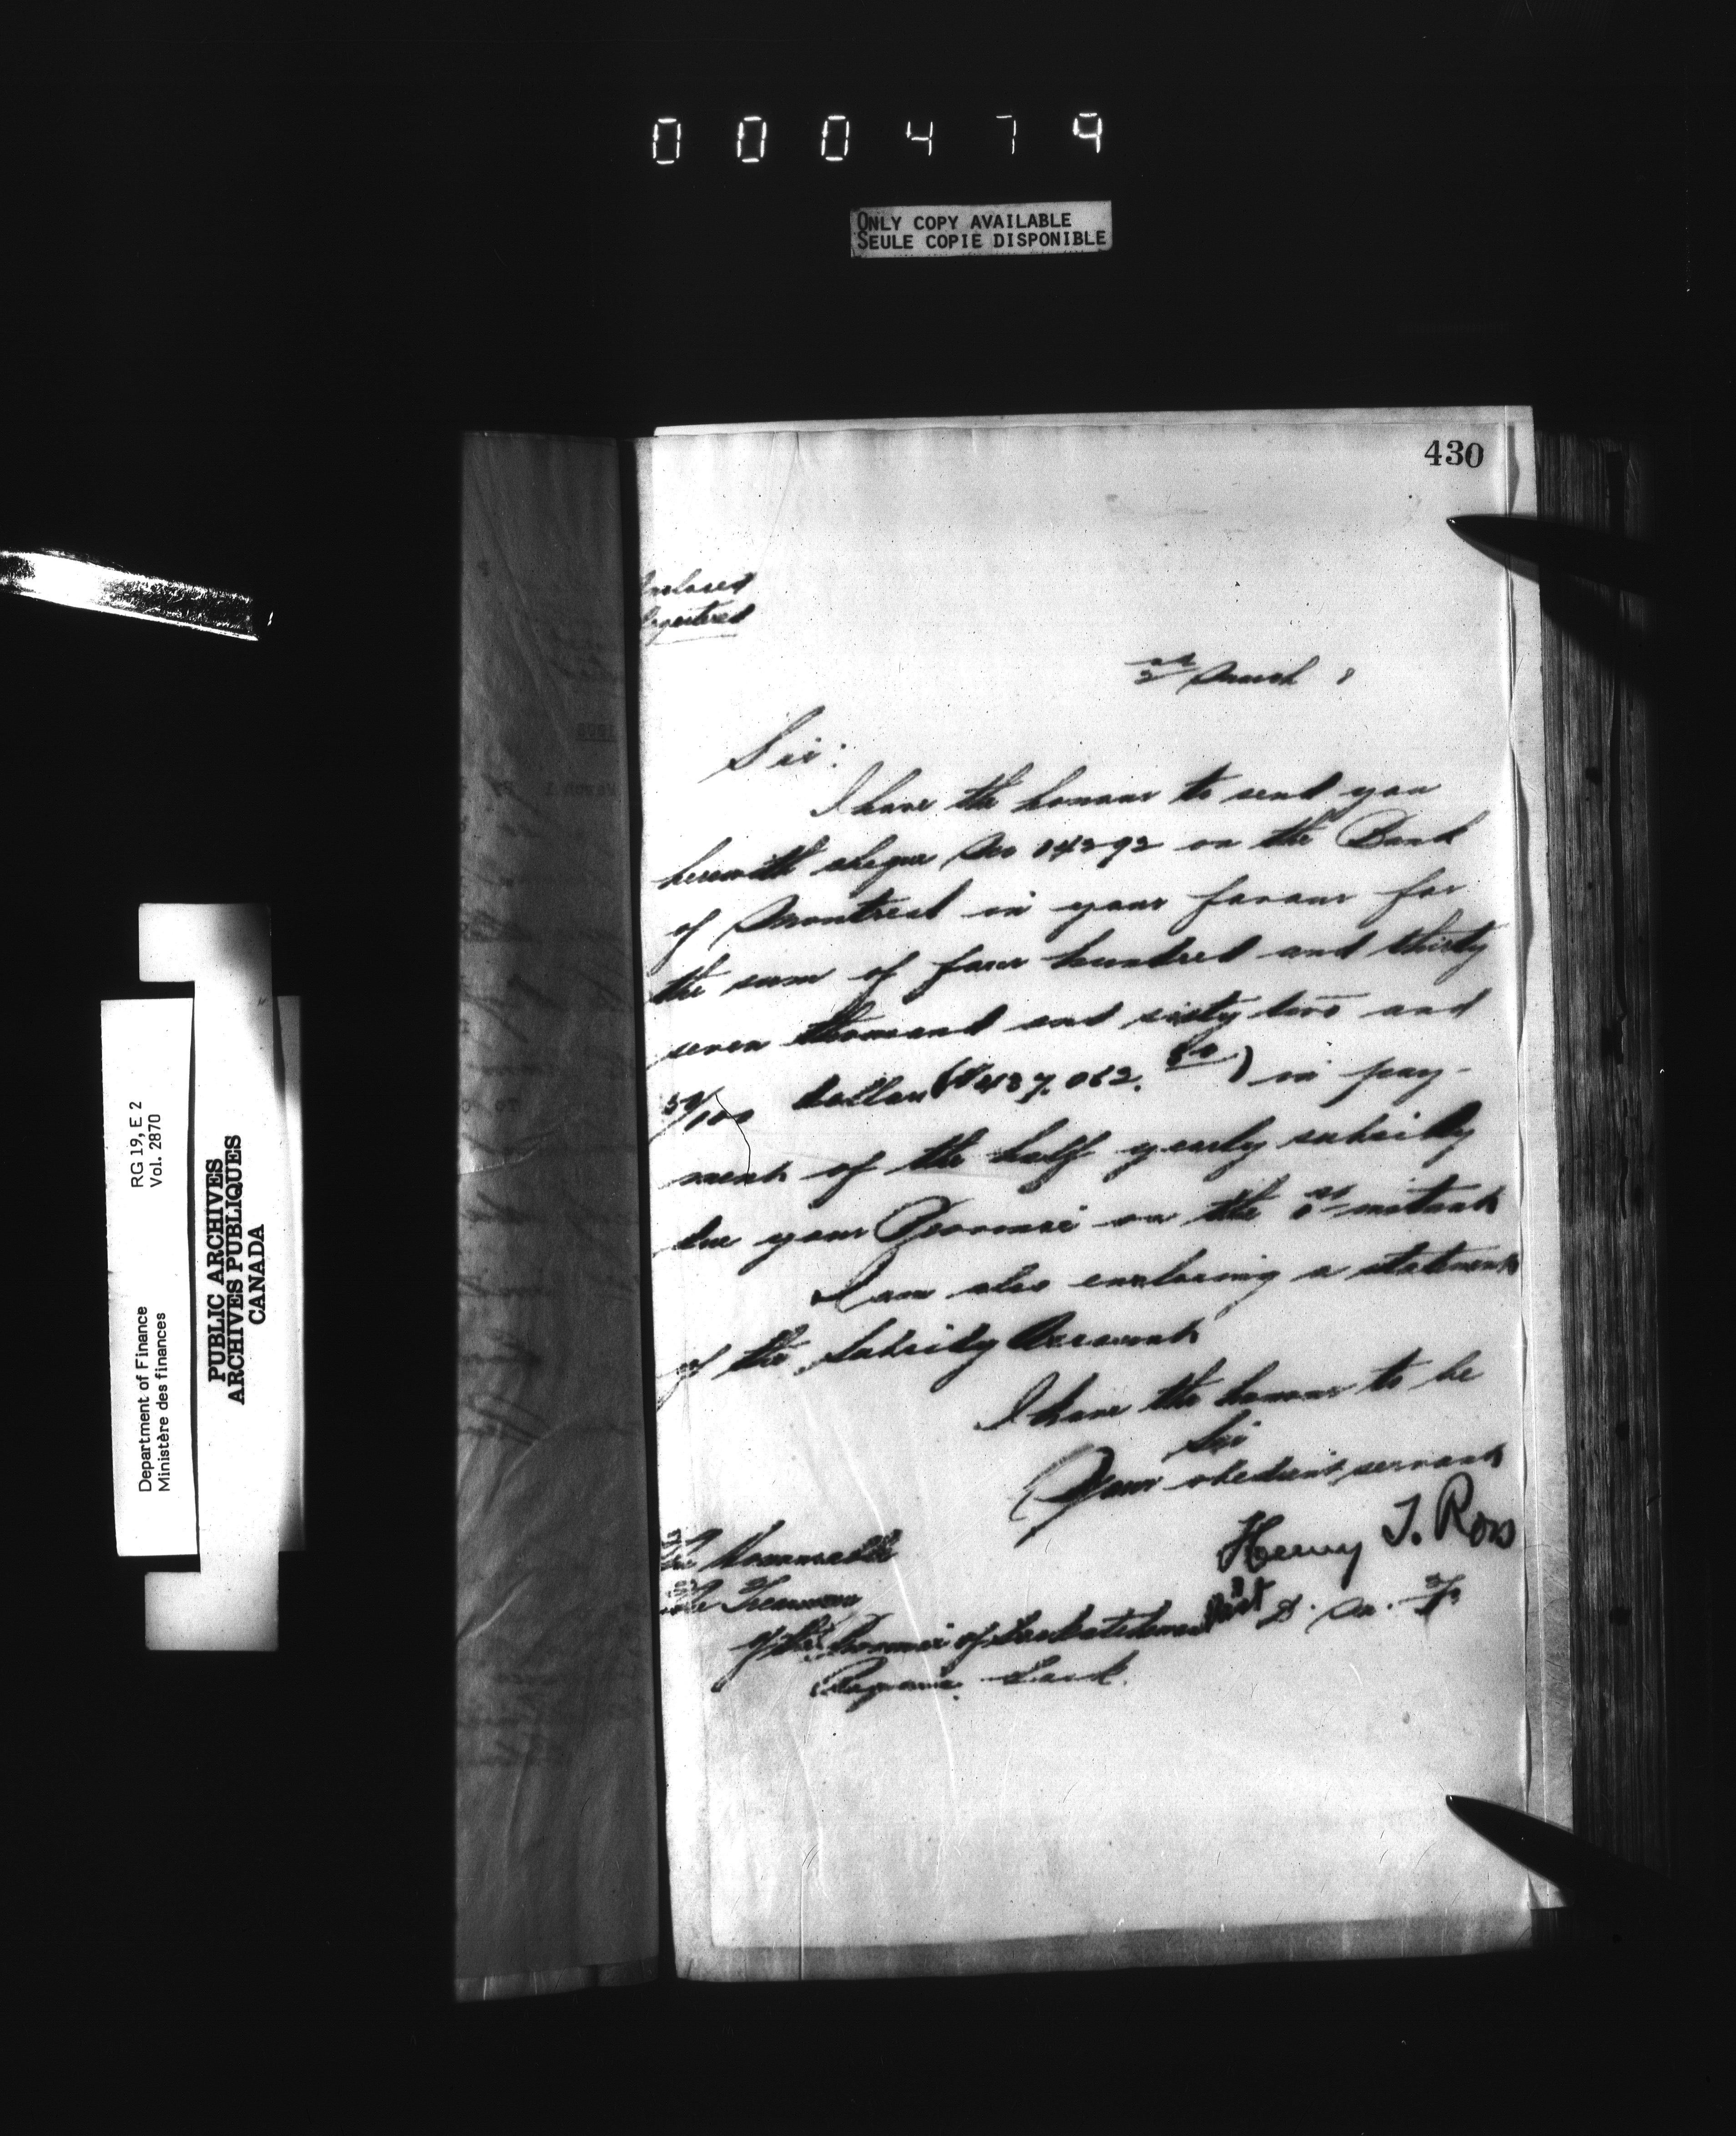 000479
ONLY COPY AVAILABLE
SEULE COPIE DISPONIBLE
430
March 8
Sir:
I have the honour to send you
herewith cheque No 14292 on the Bank
of Montreal in your favour for
the sum of four hundred and thirty
seven thousand and sixty two and
50/100 dollars ($437,062.50) in pay-
ment of the half yearly subsidy
due your Province on the 1st instant
I am also enclosing a statement
of the Subsidy Account
I have the honour to be
Sir
Your obedient servant
Henry T. Ross
Asst D. M. F.
The Honourable
The Treasurer
of the Province of Saskatchewan
Regina. Sask.
RG 19, E 2
Vol. 2870
Department of Finance
Ministère des finances
PUBLIC ARCHIVES
ARCHIVES PUBLIQUES
CANADA